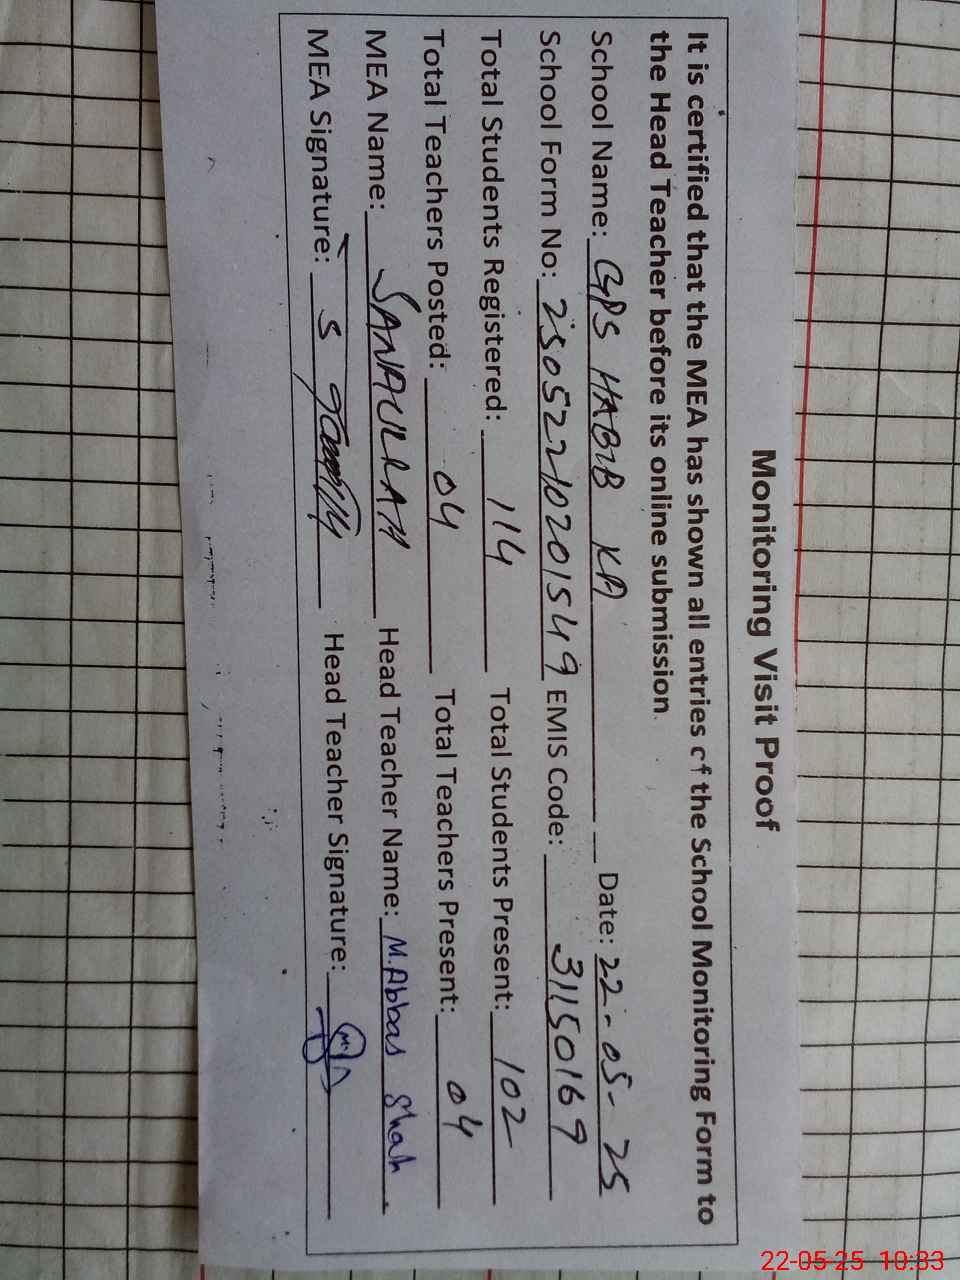 Monitoring Visit Proof
It is certified that the MEA has shown all entries of the School Monitoring Form to
the Head Teacher before its online submission.
School Name: GPS HABIB KA Date: 22-05-25
School Form No: 25052210201549 EMIS Code: 31150169
Total Students Registered: 114 Total Students Present: 102
Total Teachers Posted: 04 Total Teachers Present: 04
MEA Name: SANAULLAH Head Teacher Name: M.Abbas Shah.
MEA Signature: Head Teacher Signature:
22-05-25 10:33